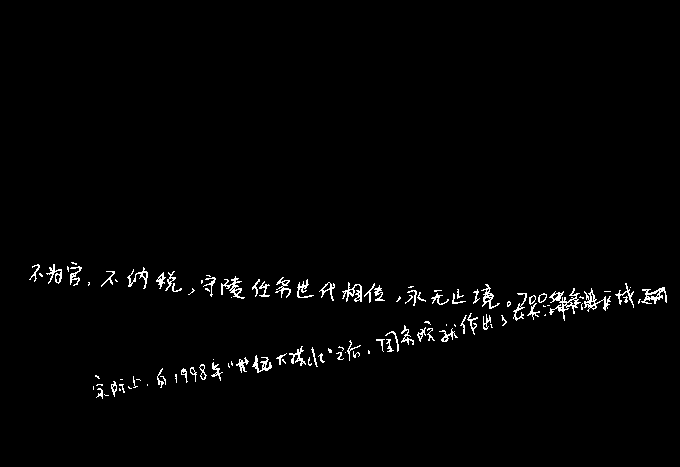 不为官，不纳税，守陵任务世代相传，永无止境。700
实际上，自1998年“世纪大洪水”之后，国务院就作出了在长江